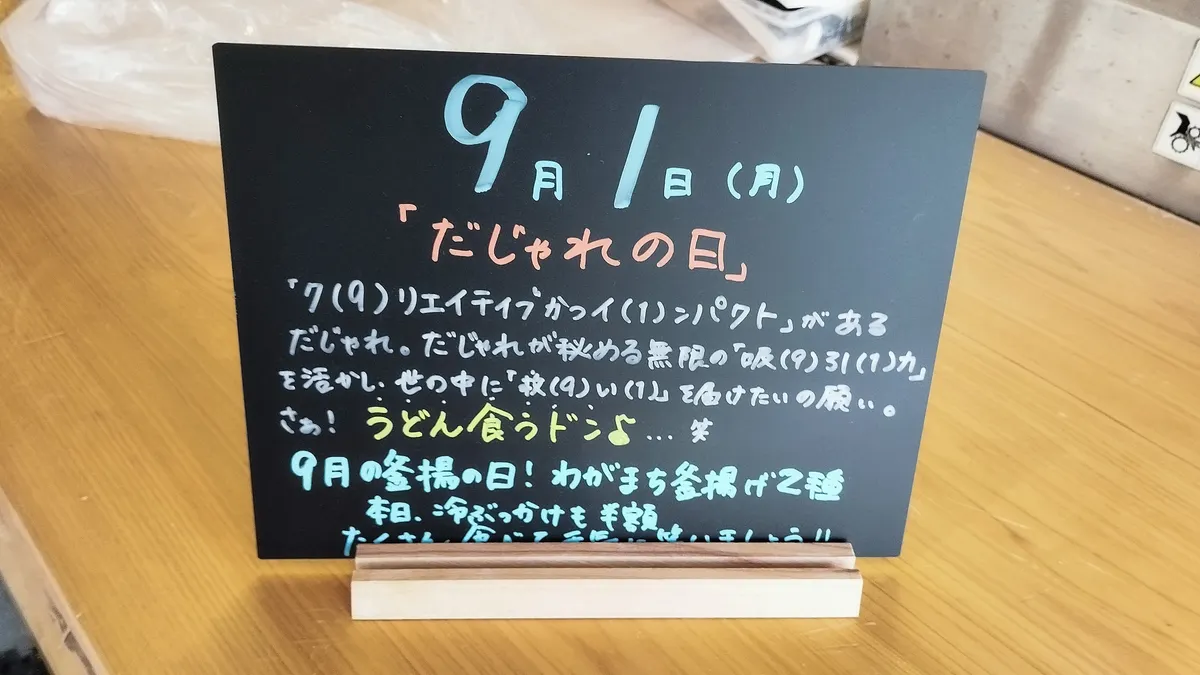 9月1日(月)
「だじゃれの日」
「ク(9)リエイティブかつイ(1)ンパクト」がある
だじゃれ。だじゃれが秘める無限の「吸(9)引(1)力」
を活かし、世の中に「救(9)い(1)」を届けたいの願い。
さぁ! うどん食うドン♪…笑
9月の釜揚の日!わがまち釜揚げ2種
本日、冷ぶっかけも半額
たくさん食べて元気に笑いましょう!!